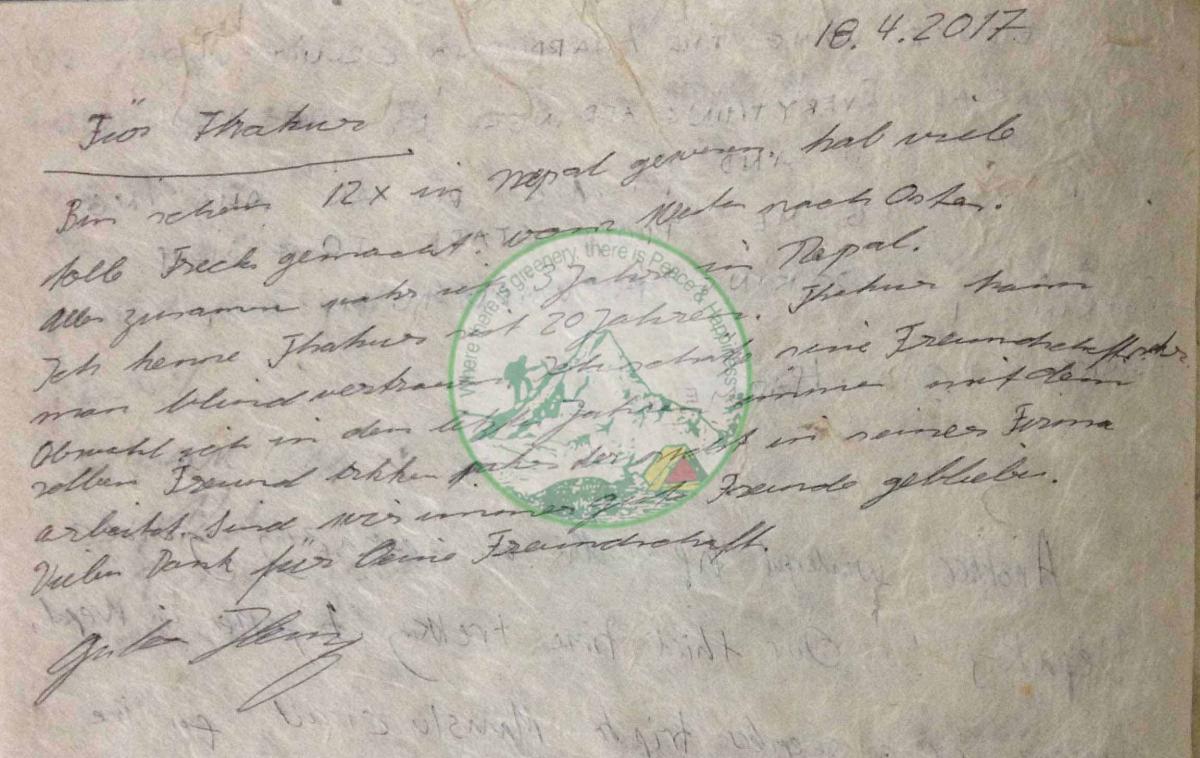 18.4.2017
Für Thakur
Bin schon 12x in Nepal gewesen, hab viele
tolle Treck gemacht. vom Westen nach Osten.
Alles zusamme wahr ich 3 Jahre in Nepal.
Ich kenne Thakur seit 20 Jahren. Thakur kann
man blind vertrauen. Ich schätze seine Freundschaft sehr
Obwohl ich in den letzte Jahren immer mit dem
selben Freund trekken der nicht in seiner Firma
arbeitet. Sind wir immer gute Freunde geblieben.
Vielen Dank für Deine Freundschaft.
Where there is greenery, there is Peace & Happiness